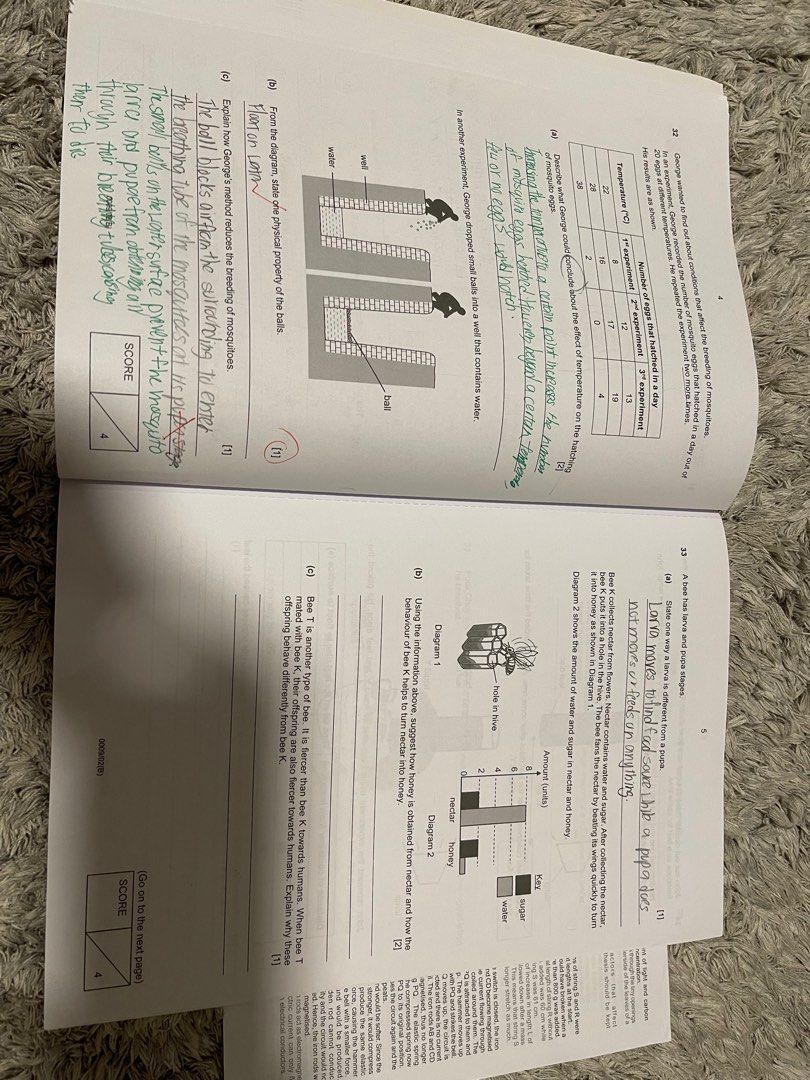 4
32 George wanted to find out about conditions that affect the breeding of mosquitoes.
In an experiment, George recorded the number of mosquito eggs that hatched in a day out of
20 eggs at different temperatures. He repeated the experiment two more times.
His results are as shown.
Temperature (°C) Number of eggs that hatched in a day
1st experiment 2nd experiment 3rd experiment
22 8 12 13
28 16 17 19
38 2 0 4
(a) Describe what George could conclude about the effect of temperature on the hatching
of mosquito eggs. [2]
Increasing the temperature to a certain point increases the number
of mosquito eggs hatched. However, beyond a certain temperature
few or no eggs would hatch.
In another experiment, George dropped small balls into a well that contains water.
well
water
ball
(b) From the diagram, state one physical property of the balls. [1]
Float on water
(c) Explain how George's method reduces the breeding of mosquitoes. [1]
The ball blocks air from the surrounding to enter
the breathing tube of the mosquitoes at its pupa stage
The small balls on the water surface prevent the mosquito
larvae and pupae from obtaining air
through their breathing tubes causing
them to die
SCORE
4
5
33 A bee has larva and pupa stages.
(a) State one way a larva is different from a pupa. [1]
Larva moves to find food source while a pupa does
not move or feeds on anything.
Bee K collects nectar from flowers. Nectar contains water and sugar. After collecting the nectar,
bee K puts it into a hole in the hive. The bee fans the nectar by beating its wings quickly to turn
it into honey as shown in Diagram 1.
Diagram 2 shows the amount of water and sugar in nectar and honey.
hole in hive
Diagram 1
Amount (units)
8
6
4
2
0
nectar honey
Key
sugar
water
Diagram 2
(b) Using the information above, suggest how honey is obtained from nectar and how the
behaviour of bee K helps to turn nectar into honey. [2]
(c) Bee T is another type of bee. It is fiercer than bee K towards humans. When bee T
mated with bee K, their offspring are also fiercer towards humans. Explain why these
offspring behave differently from bee K. [1]
(Go on to the next page)
SCORE
4
0009/02(B)